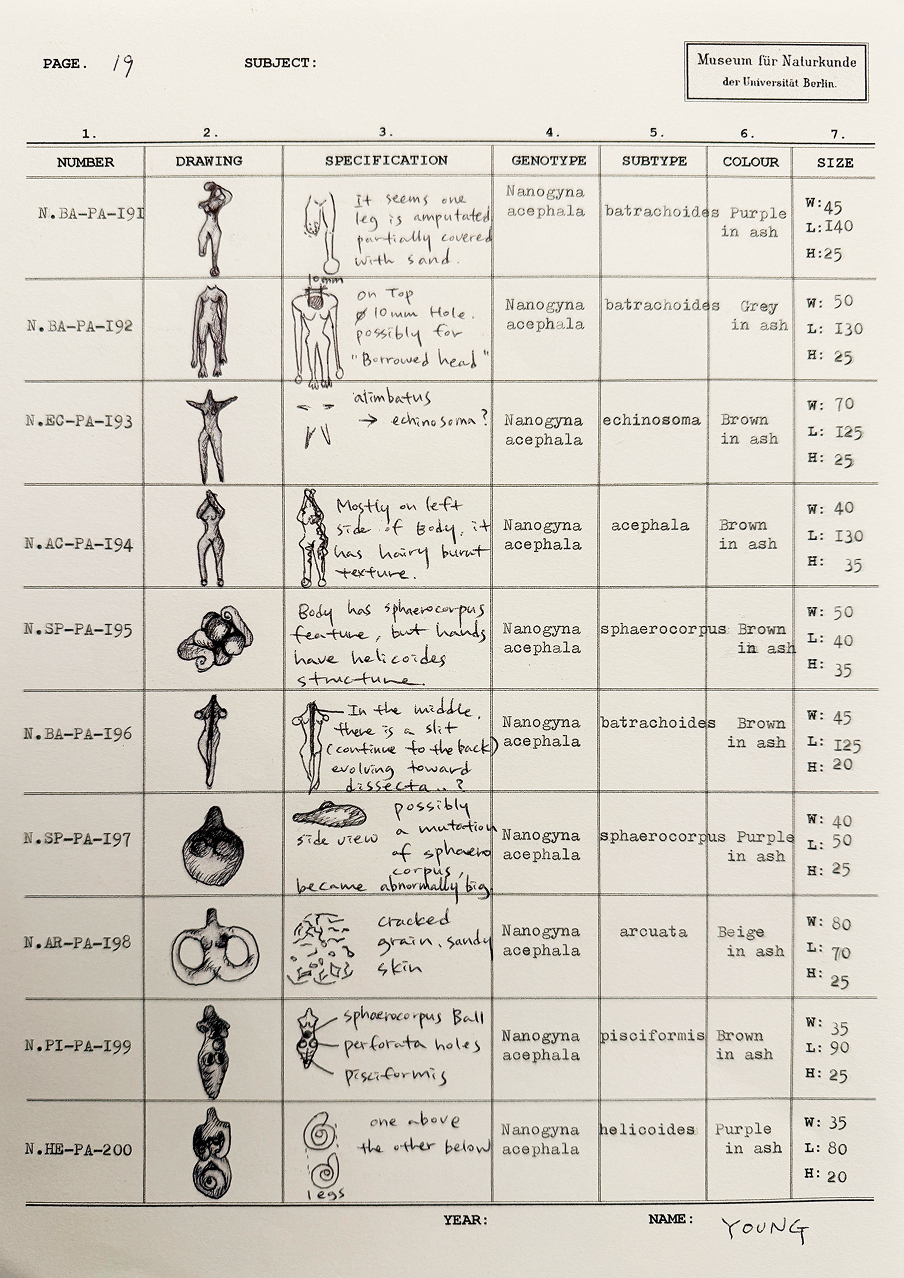 PAGE. 19
SUBJECT:
Museum für Naturkunde
der Universität Berlin.
1. 2. 3. 4. 5. 6. 7.
NUMBER DRAWING SPECIFICATION GENOTYPE SUBTYPE COLOUR SIZE
N.BA-PA-I9I
It seems one
leg is amputated
partially covered
with sand.
Nanogyna
acephala
batrachoides
Purple
in ash
W:45
L:I40
H:25
N.BA-PA-I92
10mm
on Top
ø 10mm Hole.
possibly for
"Borrowed head"
Nanogyna
acephala
batrachoides
Grey
in ash
W: 50
L: I30
H: 25
N.EC-PA-I93
alimbatus
→ echinosoma?
Nanogyna
acephala
echinosoma
Brown
in ash
W: 70
L: I25
H: 25
N.AC-PA-I94
Mostly on left
side of Body, it
has hairy burnt
texture.
Nanogyna
acephala
acephala
Brown
in ash
W: 40
L: I30
H: 35
N.SP-PA-I95
Body has sphaerocorpus
feature, but hands
have helicoides
structure.
Nanogyna
acephala
sphaerocorpus
Brown
in ash
W: 50
L: 40
H: 35
N.BA-PA-I96
In the middle,
there is a slit
(continue to the back)
evolving toward
dissecta..?
Nanogyna
acephala
batrachoides
Brown
in ash
W: 45
L: I25
H: 20
N.SP-PA-I97
side view
possibly
a mutation
of sphaero
corpus,
became abnormally big.
Nanogyna
acephala
sphaerocorpus
Purple
in ash
W: 40
L: 50
H: 25
N.AR-PA-I98
cracked
grain. sandy
skin
Nanogyna
acephala
arcuata
Beige
in ash
W: 80
L: 70
H: 25
N.PI-PA-I99
sphaerocorpus Ball
perforata holes
pisciformis
Nanogyna
acephala
pisciformis
Brown
in ash
W: 35
L: 90
H: 25
N.HE-PA-200
one above
the other below
legs
Nanogyna
acephala
helicoides
Purple
in ash
W: 35
L: 80
H: 20
YEAR:
NAME: YOUNG